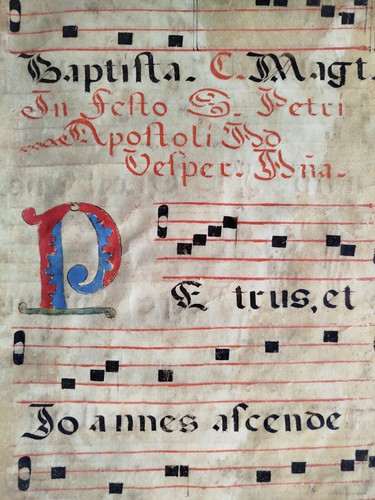 Baptista. C. Magt.
In festo S. Petri
Apostoli Ad
Vesper. Aña.
PE trus, et
Jo annes ascende